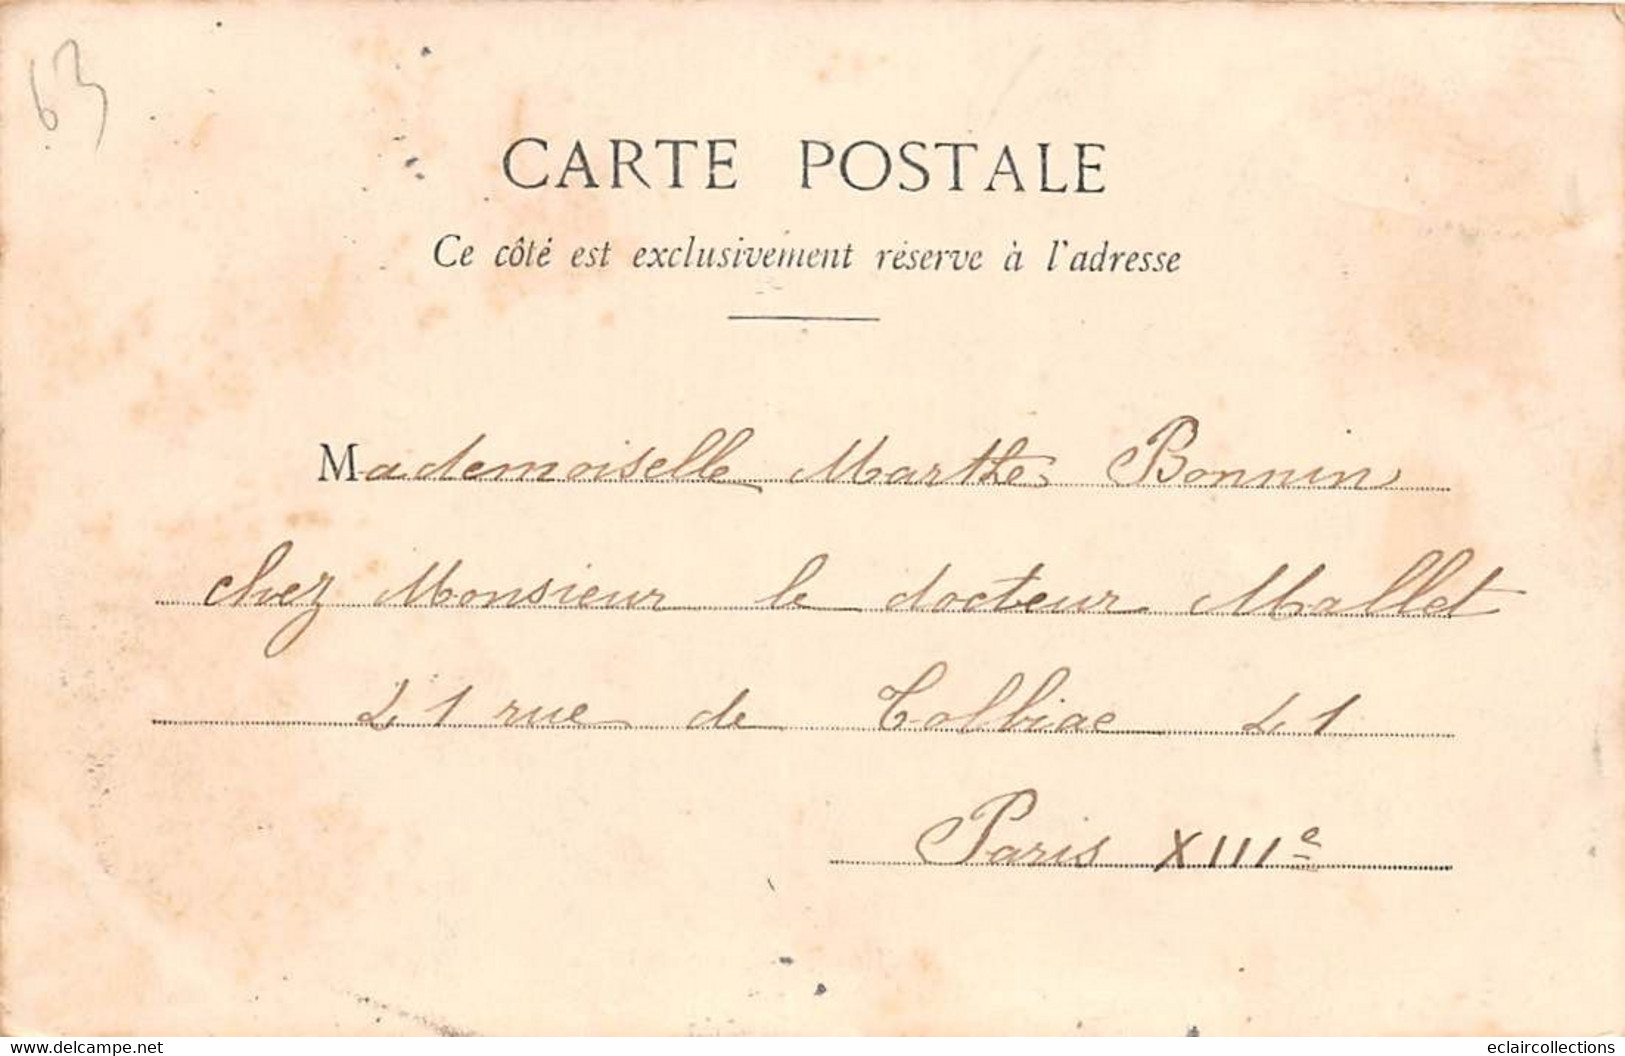 63
CARTE POSTALE
Ce côté est exclusivement réservé à l'adresse
Mademoiselle Marthe Bonnin
chez Monsieur le docteur Mallet
41 rue de Tolbiac 41
Paris XIIIe
www.delcampe.net
eclaircollections